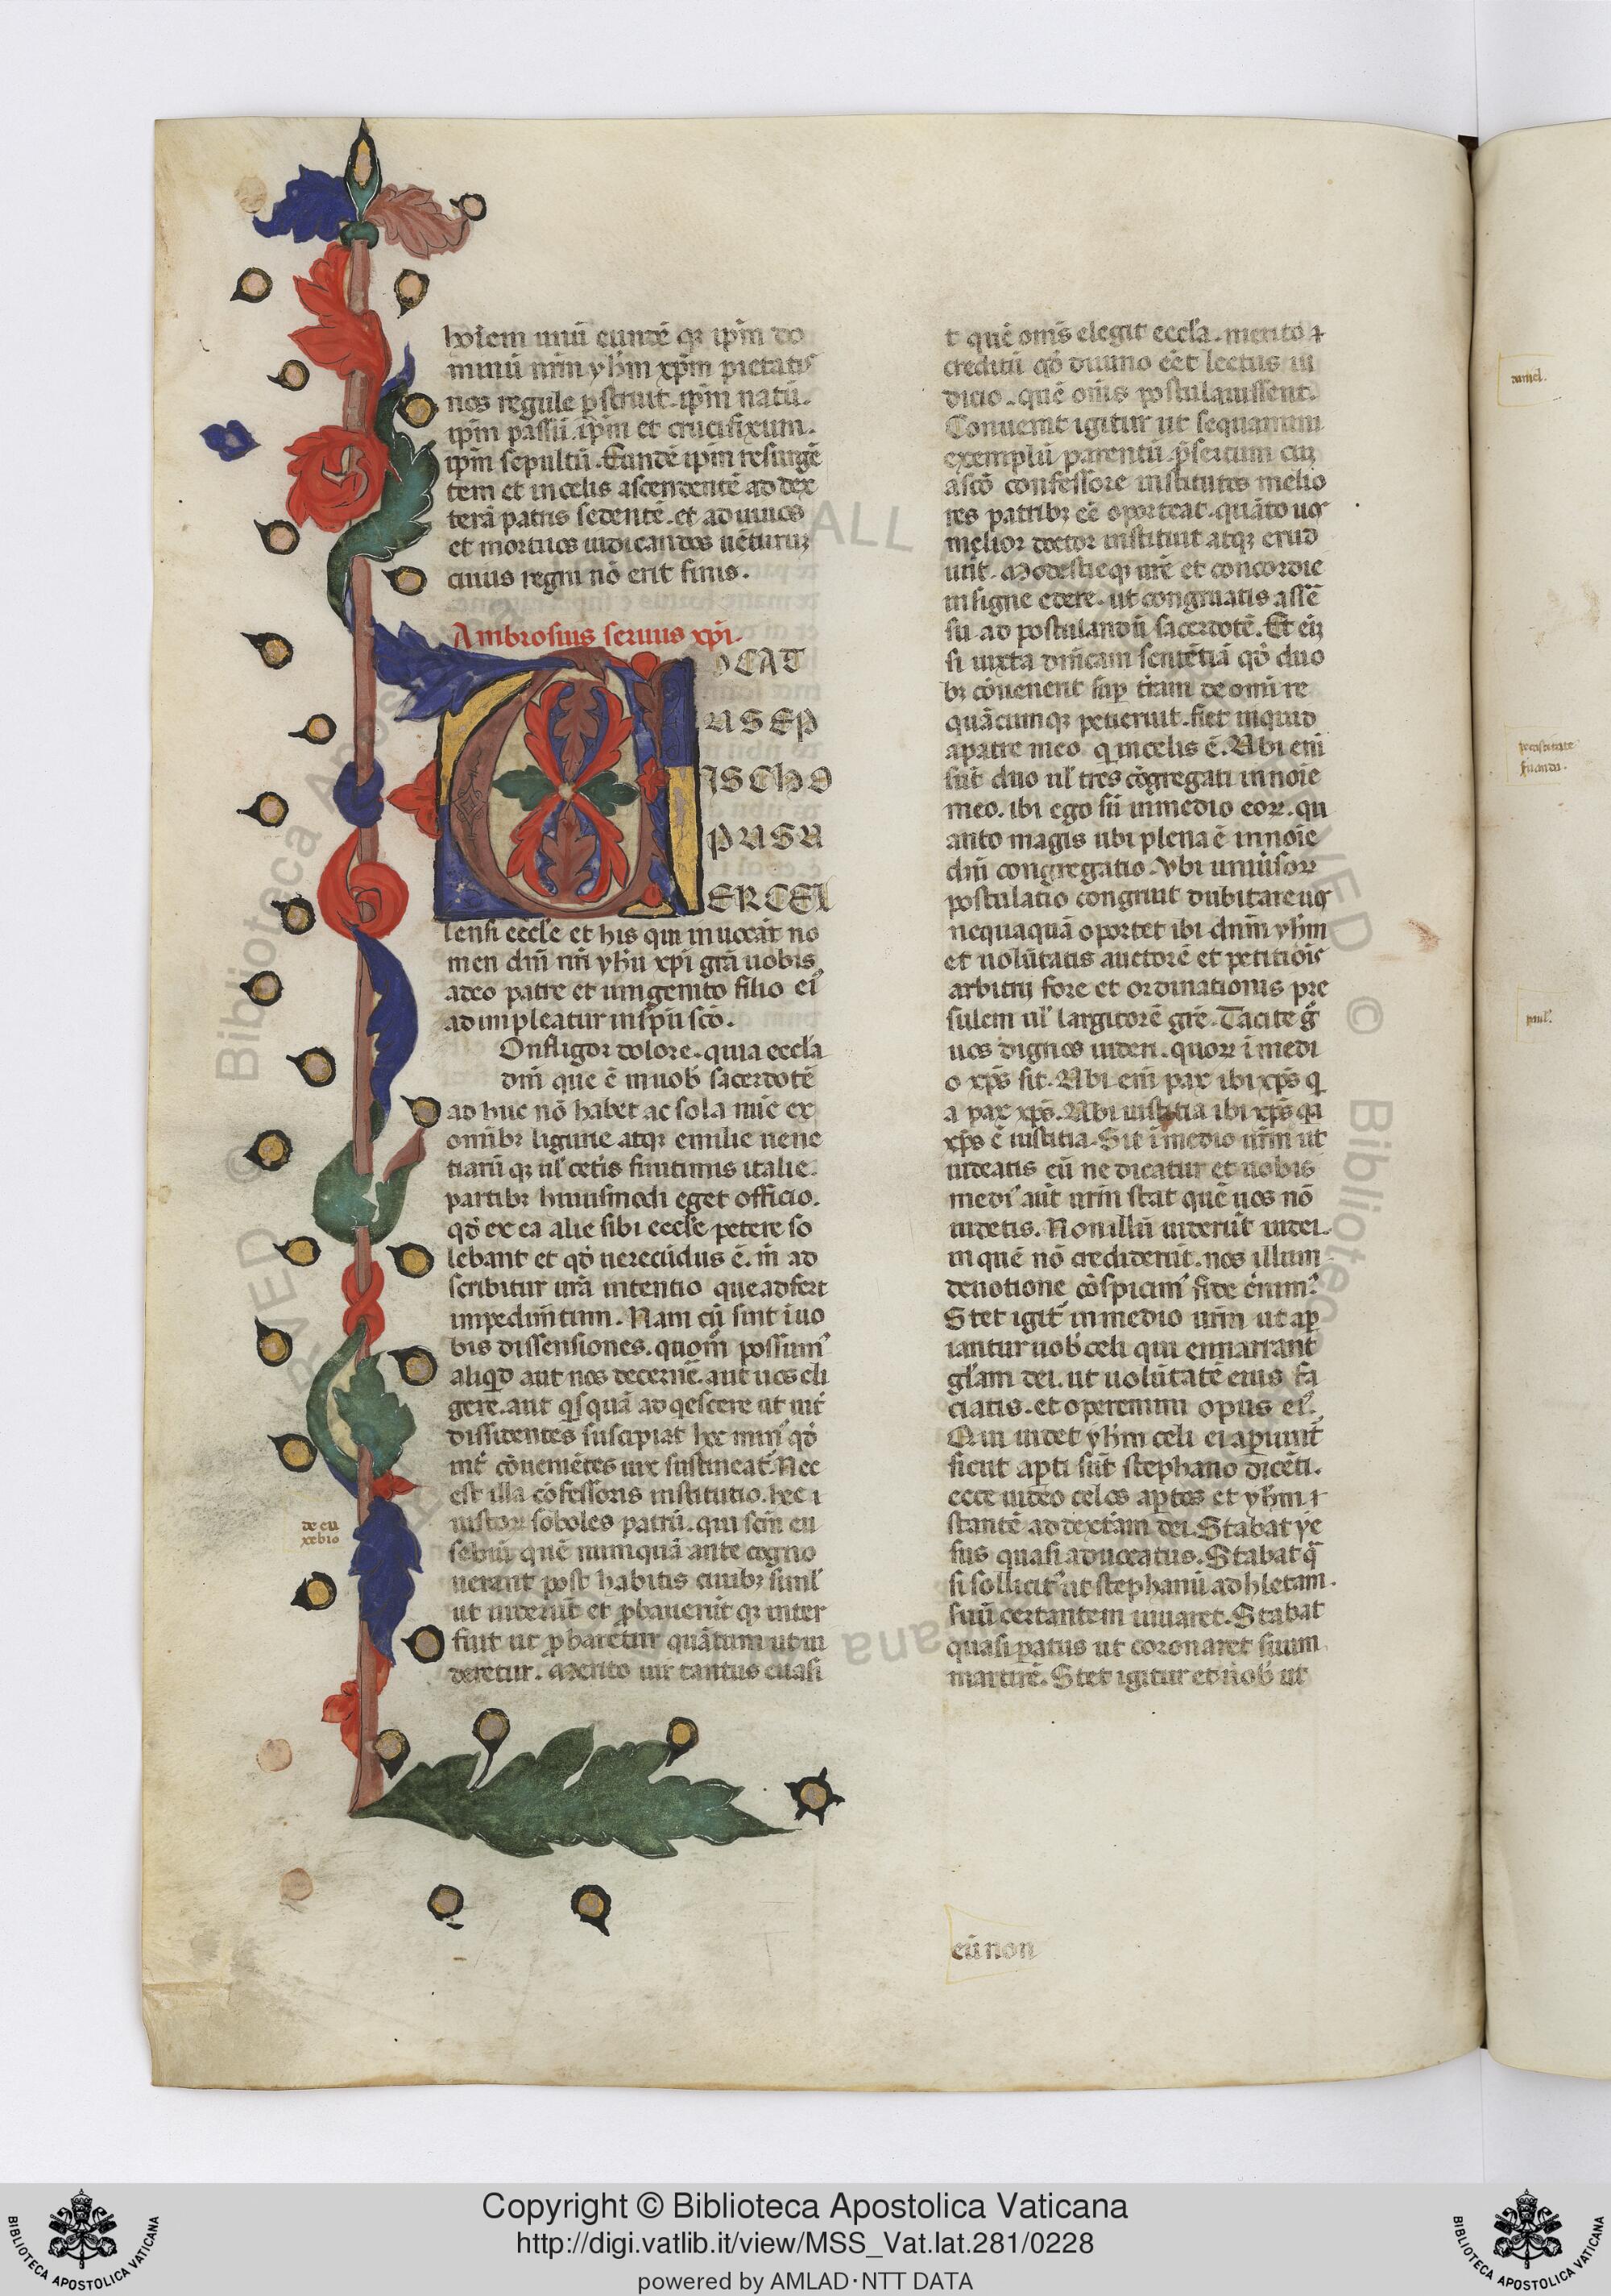 hoı̄em unū eundē qꝫ ip̄m do
minū nr̄m yh̄m xp̄m pietatis
nos regule ꝑstruit. ip̄m natū.
ip̄m passū. ip̄m et crucifixum.
ip̄m sepultū. Eundē ip̄m resurgē
tem et in celis ascendentē ad dex
terā patris sedentē. et ad uiuos
et mortuos iudicandos uēturū
cuius regni nō erit finis.
Ambrosius seruus xp̄i.
OCAT
USEP
ISCHO
PUSU
ERCEL
lensi eccl̄e et his qui inuocāt no
men dn̄i nr̄i yh̄u xp̄i grā uobis
adeo patre et unigenito filio ei᾽
adimpleatur in sp̄u sc̄o.
Onfligor dolore. quia eccl̄a
dn̄i que ē in uob̄ sacerdotē
ad huc nō habet ac sola nūc ex
omībꝫ ligurie atqꝫ emilie uene
tiarū qꝫ ul̄ cet̄is finitimis italie
partibꝫ huiusmodi eget officio.
qd̄ ex ea alie sibi eccl̄e petere so
lebant et qd̄ uerecūdius ē. m̄ ad
scribitur urā intentio que adfert
impedim̄tum. Nam cū sint ī uo
bis dissensiones. quom̄ possum᾽
aliqͥd aut nos decernē. aut uos eli
gere. aut qͥsquā adqescere ut int̄
dissidentes suscipiat hoc mun᾽ qd̄
int̄ cōueniētes uix sustineat᾽. Nec
est illa cōfessoris institutio. hec ı
iustoꝝ soboles patrū. qui sc̄m eu
sebiū quē numquā ante cogno
uerant post habitis ciuibꝫ siml̄
ut uiderūt et ꝓbauerūt qꝫ inter
fuit ut ꝓbaretur quātum ut ui
deretur. Merito uir tantus euasi
de eu
xebio
t quē om̄s elegit eccl̄a. merito ⁊
creditū qd̄ diuino eēt lectus iu
dicio. quē om̄s postulauissent.
Conuenit igitur ut sequamini
exemplū parentū p̄sertim cū
a sc̄o confessore institutos melio
res patribꝫ eē oporteat. quāto uos
melior doctor instituit atqꝫ erud
iuit. Modestieqꝫ ur̄e et concordie
insigne edere. ut congruatis assē
su ad postulandū sacerdotē. Et eīꝫ
si iuxta dn̄icam sentētiā qd̄ duo
bꝫ cōuenerit sup̄ t̄ram de omi re
quācumqꝫ petierint. fiet inquid
apatre meo qͥ in celis ē. Ubi enī
sūt duo ul̄ tres cōgregati in noı̄e
meo. ibi ego sū in medio eoꝝ. qu
anto magis ubi plena ē in noı̄e
dn̄i congregatio. Ubi uniūsoꝝ
postulatio congruit dubitare uos
nequaquā oportet ibi dn̄m yh̄m
et uolūtatis auctorē et petitiōis
arbitrū fore et ordinationis pre
sulem ul̄ largitorē grē. Facite gͦ
uos dignos uideri. quoꝝ ī medi
o xp̄s sit. Ubi enī pax ibi xp̄s qͥ
a pax xp̄s. Ubi iustitia ibi xp̄s qͥa
xp̄s ē iustitia. Sit ī medio ur̄m ut
uideatis eū ne dicatur et uobis
medi᾽ aut ur̄m stat quē uos nō
uidetis. Non illū uiderūt iudei.
in quē nō crediderūt. nos illum
deuotione cōspicim᾽ fide cernim᾽.
Stet igit᾽ in medio ur̄m ut ap̄
iantur uob̄ celi qui ennarrant
gl̄am dei. ut uolūtatē eius fa
ciatis. et operemini opus ei᾽.
Qui uidet yh̄m celi ei ap̄iunt᾽
sicut ap̄ti sūt stephano dicēti.
ecce uideo celos ap̄tos et yh̄m ı
stantē ad dext̄am dei. Stabat ye
sus quasi aduocatus. Stabat qͣ
si sollicit᾽ ut stephanū adhletam
suū certantem iuuaret. Stabat
quasi paratus ut coronaret suum
martirē. Stet igitur et uob̄ ut
eū non
pauł.
Copyright © Biblioteca Apostolica Vaticana
http://digi.vatlib.it/view/MSS_Vat.lat.281/0228
powered by AMLAD·NTT DATA
BIBLIOTECA APOSTOLICA VATICANA
BIBLIOTECA APOSTOLICA VATICANA